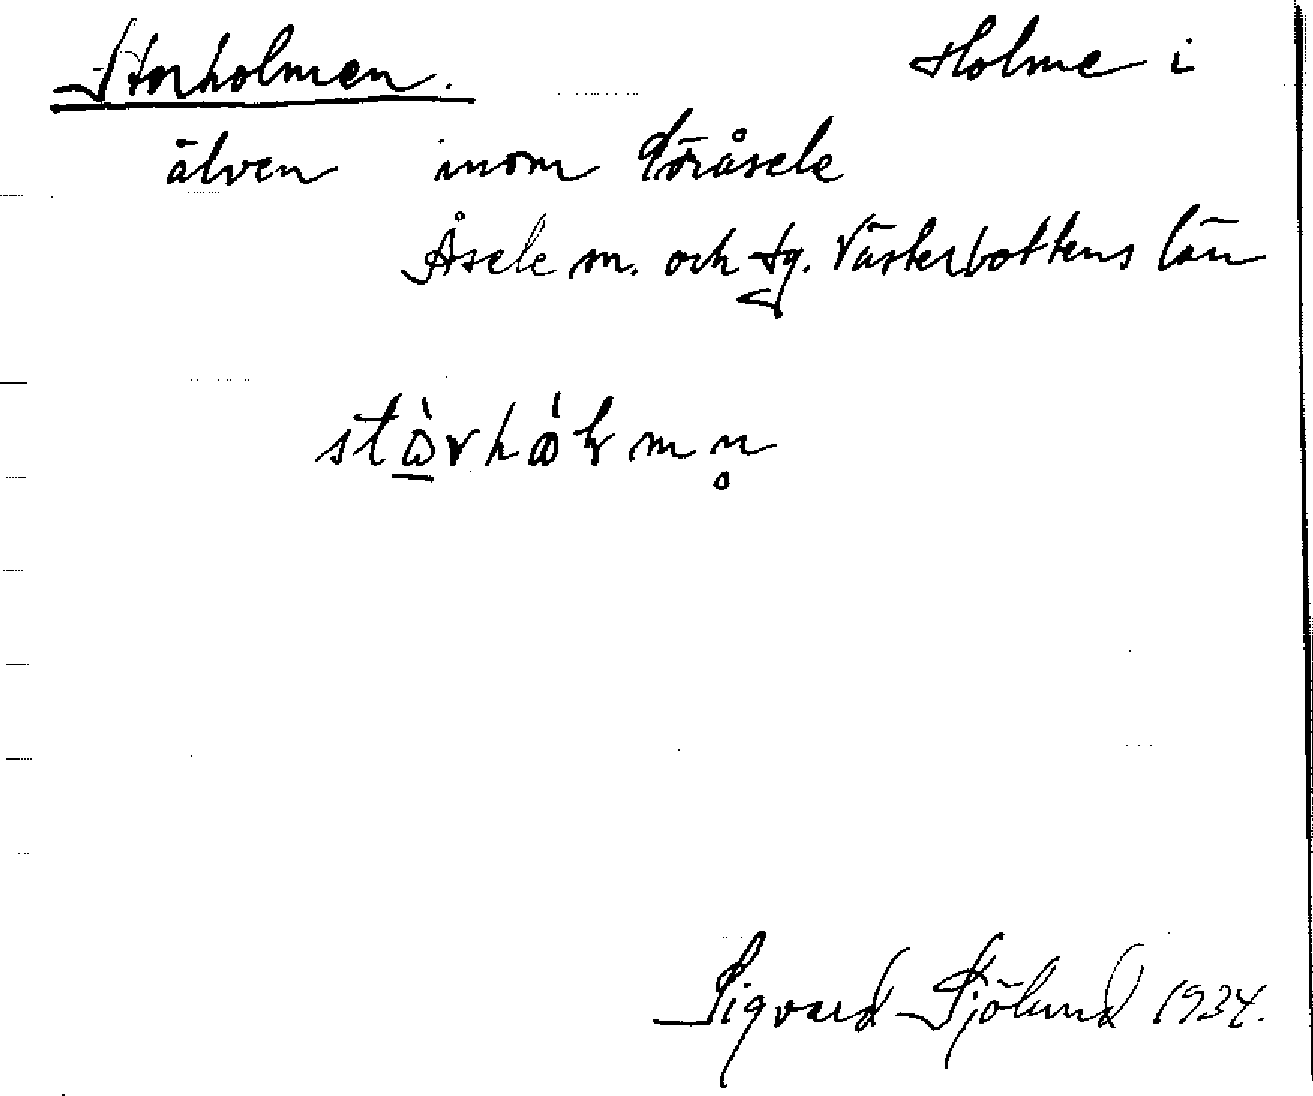 Storholmen. Holme i
älven inom Söråsele
Åsele sn. och tg. Västerbottens län
Sigvard Sjölund 1934.